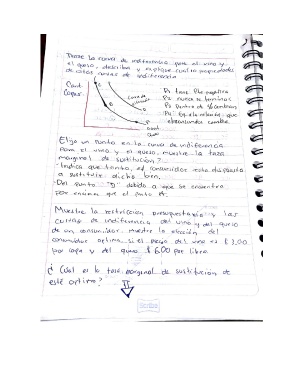 Trace la curva de indiferencia para el vino y
el queso, describa y explique cuatro propiedades
de estas curvas de indiferencia
Cant
Copas
C
B
D
A
Curva de
P1 tiene Pte negativa
P2 nunca se terminan
P3
P4
cambie
Cant
Queso
Elija un punto en la curva de indiferencia
Para el vino y el queso muestre la tasa
marginal de sustitución?
Indica que tanto, el consumidor esta dispuesto
a sustituir dicho bien.
Del punto "D" debido a que se encuentra
por encima que el punto A.
Muestre la restricción presupuestaria y las
curvas de indiferencia del vino y del queso
de un consumidor muestre la elección del
consumidor optima si el precio del vino es $3.00
por copa y del queso $6.00 por libra
¿Cual es la tasa marginal de sustitución de
este optimo?
Scribe